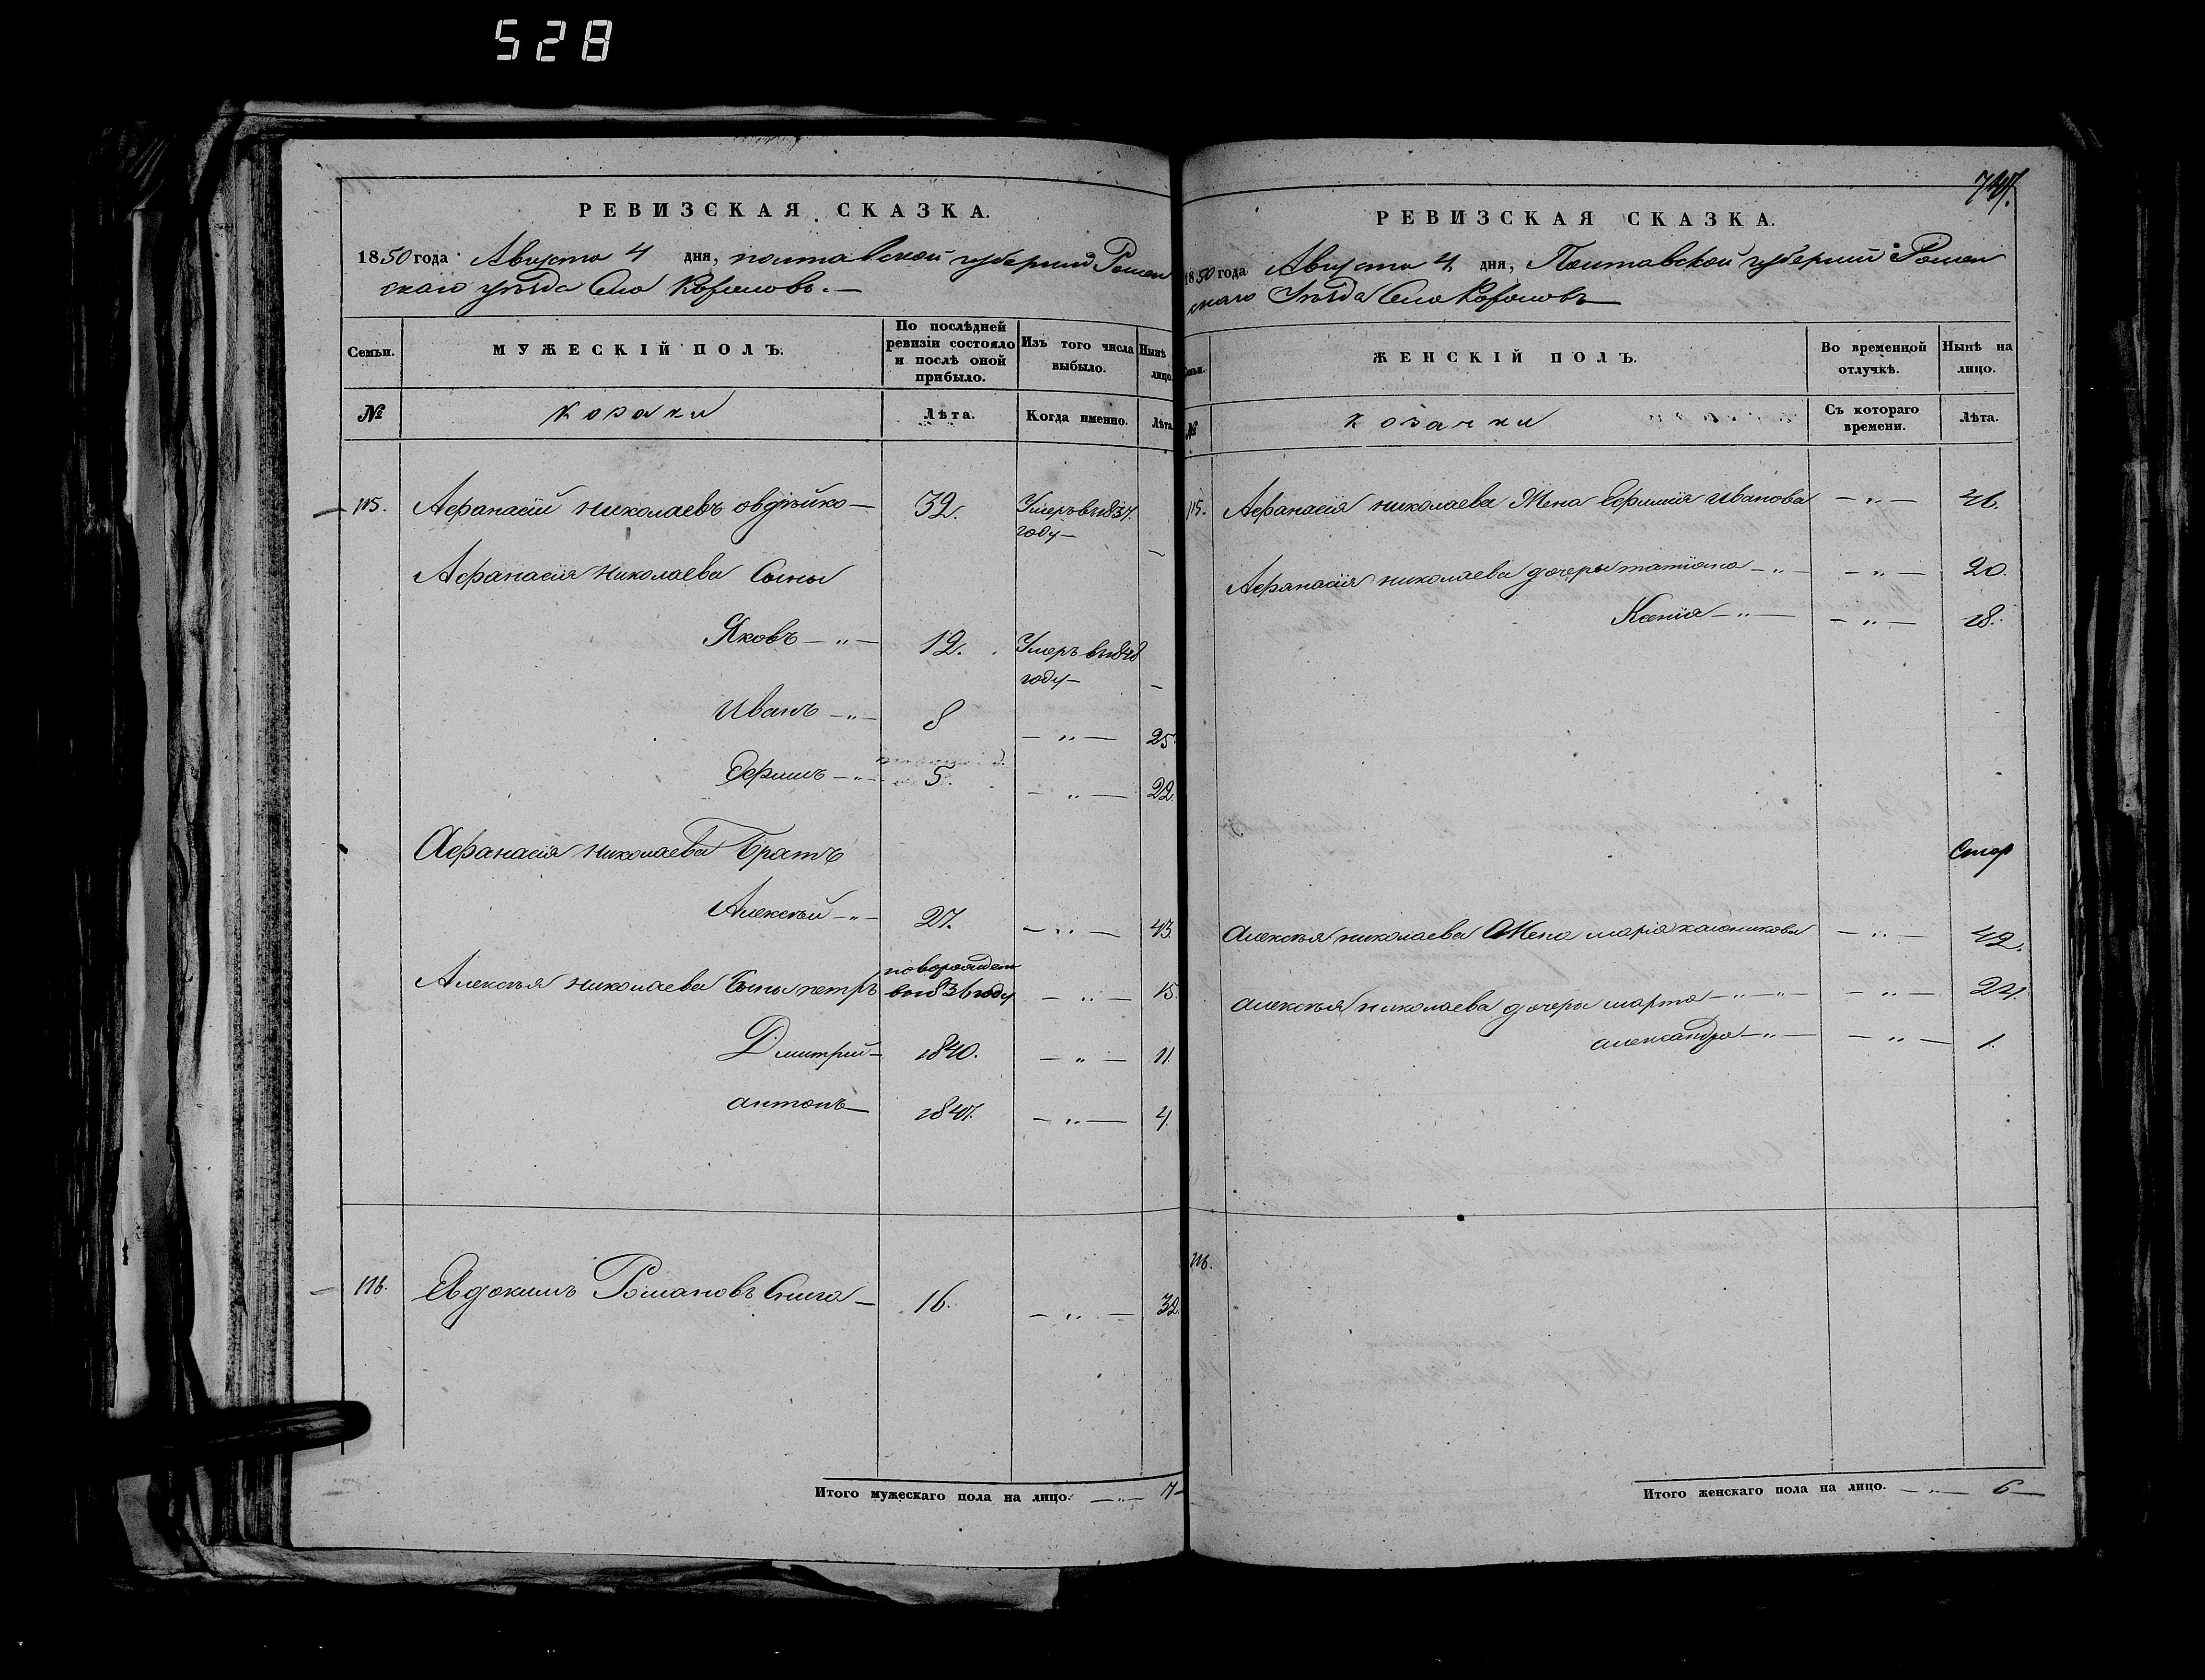 528
РЕВИЗСКАЯ СКАЗКА.
1850 года Августа 4 дня, полтавской губерний Ромен
скаго уѣзда Село
Семьи.
МУЖЕСКІЙ ПОЛЪ.
По послѣдней ревизіи состояло и послѣ оной прибыло.
Изъ того числа выбыло.
Нынѣ лицо.
№
козаки
Лѣта.
Когда именно.
Лѣта.
115. Афанасій николаевъ овдѣйко — 32. Умеръ в 1837.
году —
Афанасія николаева Сыны
Яковъ — „ — 12. Умеръ в 1848
году —
Иванъ — „ — 8 — „ — 25
Ефимъ — „ — 5. — „ — 22.
Афанасія николаева Братъ
Алексѣй — „ — 27. — „ — 43.
Алексѣя николаева Сыны петръ новорожден
в 1836 году — „ — 15.
Дмитрий — 1840. — „ — 11.
антонъ — 1847. — „ — 4.
116. Авдокимъ Романовъ — 16. — „ — 32.
Итого мужескаго пола на лицо. — „ — 7 —
747.
РЕВИЗСКАЯ СКАЗКА.
1850 года Августа 4 дня, Полтавской губерний Ромен
скаго Уѣзда Село
Семьи.
ЖЕНСКІЙ ПОЛЪ.
Во временной отлучкѣ.
Нынѣ на лицо.
№
козачки
Съ котораго времени.
Лѣта.
115. Афанасія николаева Жена Ефимия иванова — „ — 46.
Афанасія николаева дочеры татіана — „ — — „ — 20.
Ксенія — „ — — „ — 18.
Алексѣя николаева Жена марія — „ — 42.
алексѣя николаева дочеры марта — „ — „ — — „ — 24.
александра — „ — — „ — 1.
116.
Итого женскаго пола на лицо. — „ — 6 —